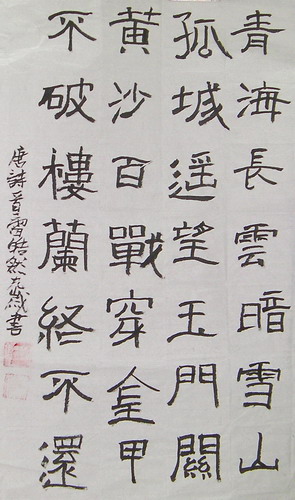 青海長雲暗雪山
孤城遥望玉門關
黄沙百戰穿金甲
不破樓蘭終不還
唐詩 皓然九歲書